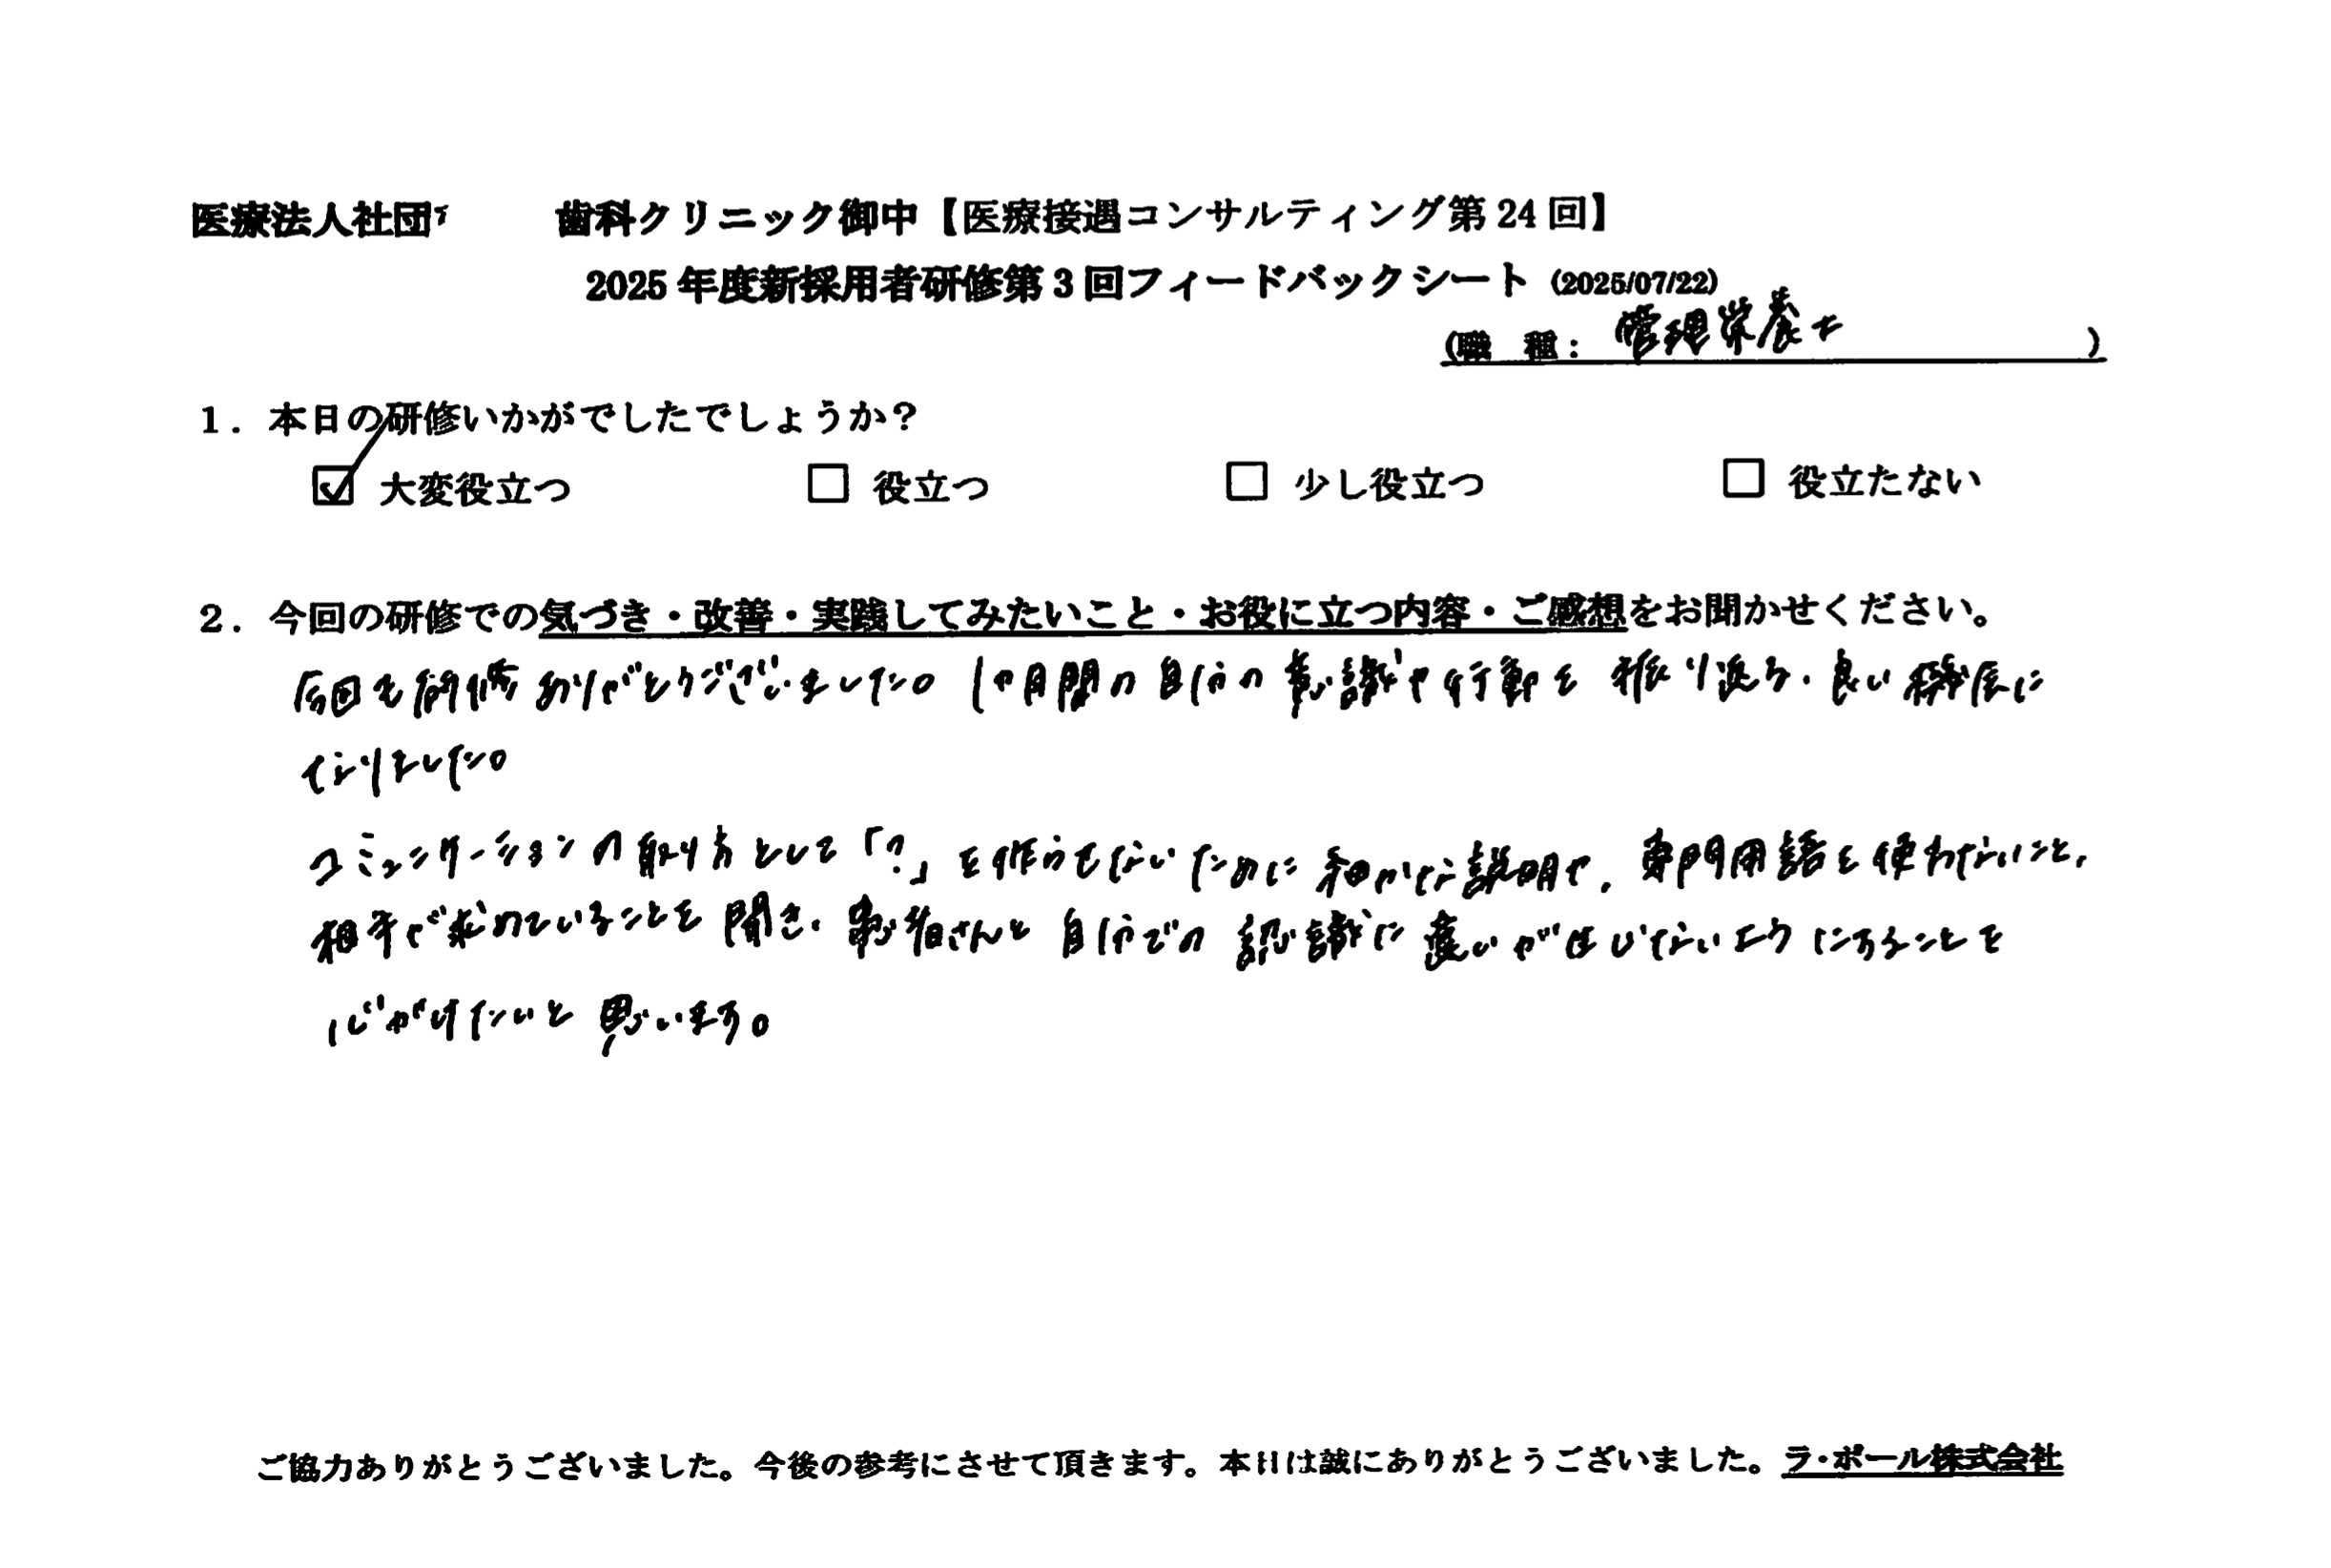 医療法人社団 歯科クリニック御中【医療接遇コンサルティング第24回】
2025年度新採用者研修第3回フィードバックシート（2025/07/22）
(職　種：管理栄養士)
1．本日の研修いかがでしたでしょうか？
☑ 大変役立つ □ 役立つ □ 少し役立つ □ 役立たない
2．今回の研修での気づき・改善・実践してみたいこと・お役に立つ内容・ご感想をお聞かせください。
今回も研修ありがとうございました。1ヶ月間の自分の意識や行動を振り返る、良い機会に
なりました。
コミュニケーションの取り方として「？」を作らせないために細かな説明や、専門用語を使わないこと、
相手が求めていることを聞き、患者さんと自分での認識に違いがないようにすることを
心がけたいと思います。
ご協力ありがとうございました。今後の参考にさせて頂きます。本日は誠にありがとうございました。ラ・ポール株式会社